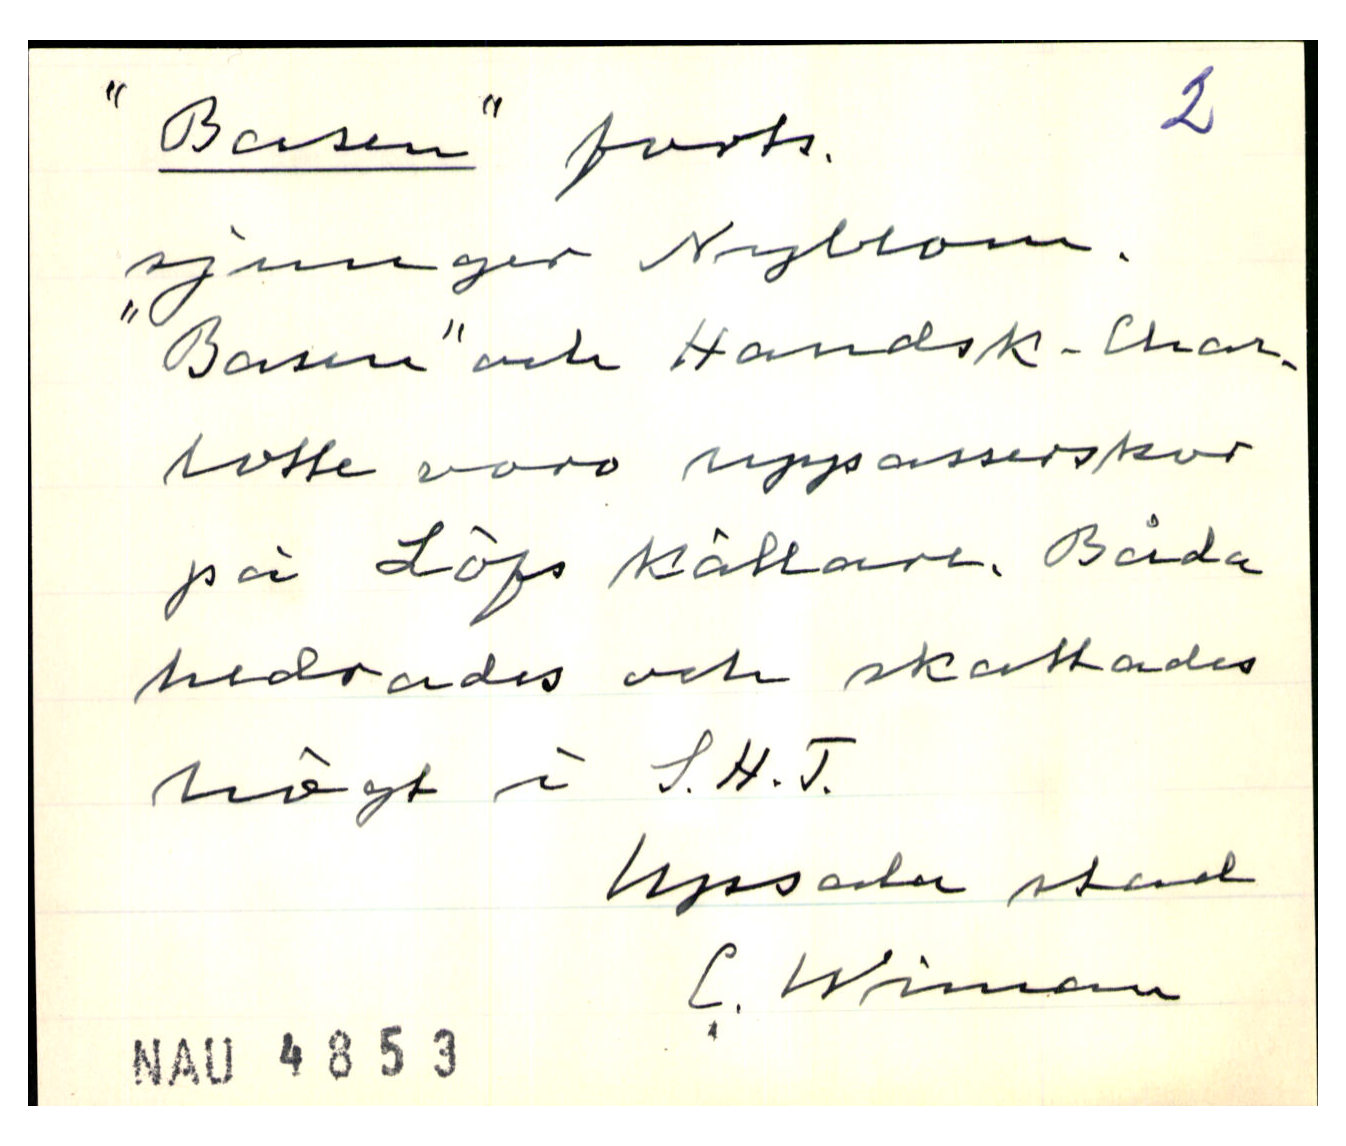 "Basen" forts. 2
sjunger Nyblom.
"Basen" och Handsk-Char-
lotte voro uppasserskor
på Löfs källare. Båda
hedrades och skattades
högt i S.H.T.
Uppsala stad
C. Wiman
NAU 4853